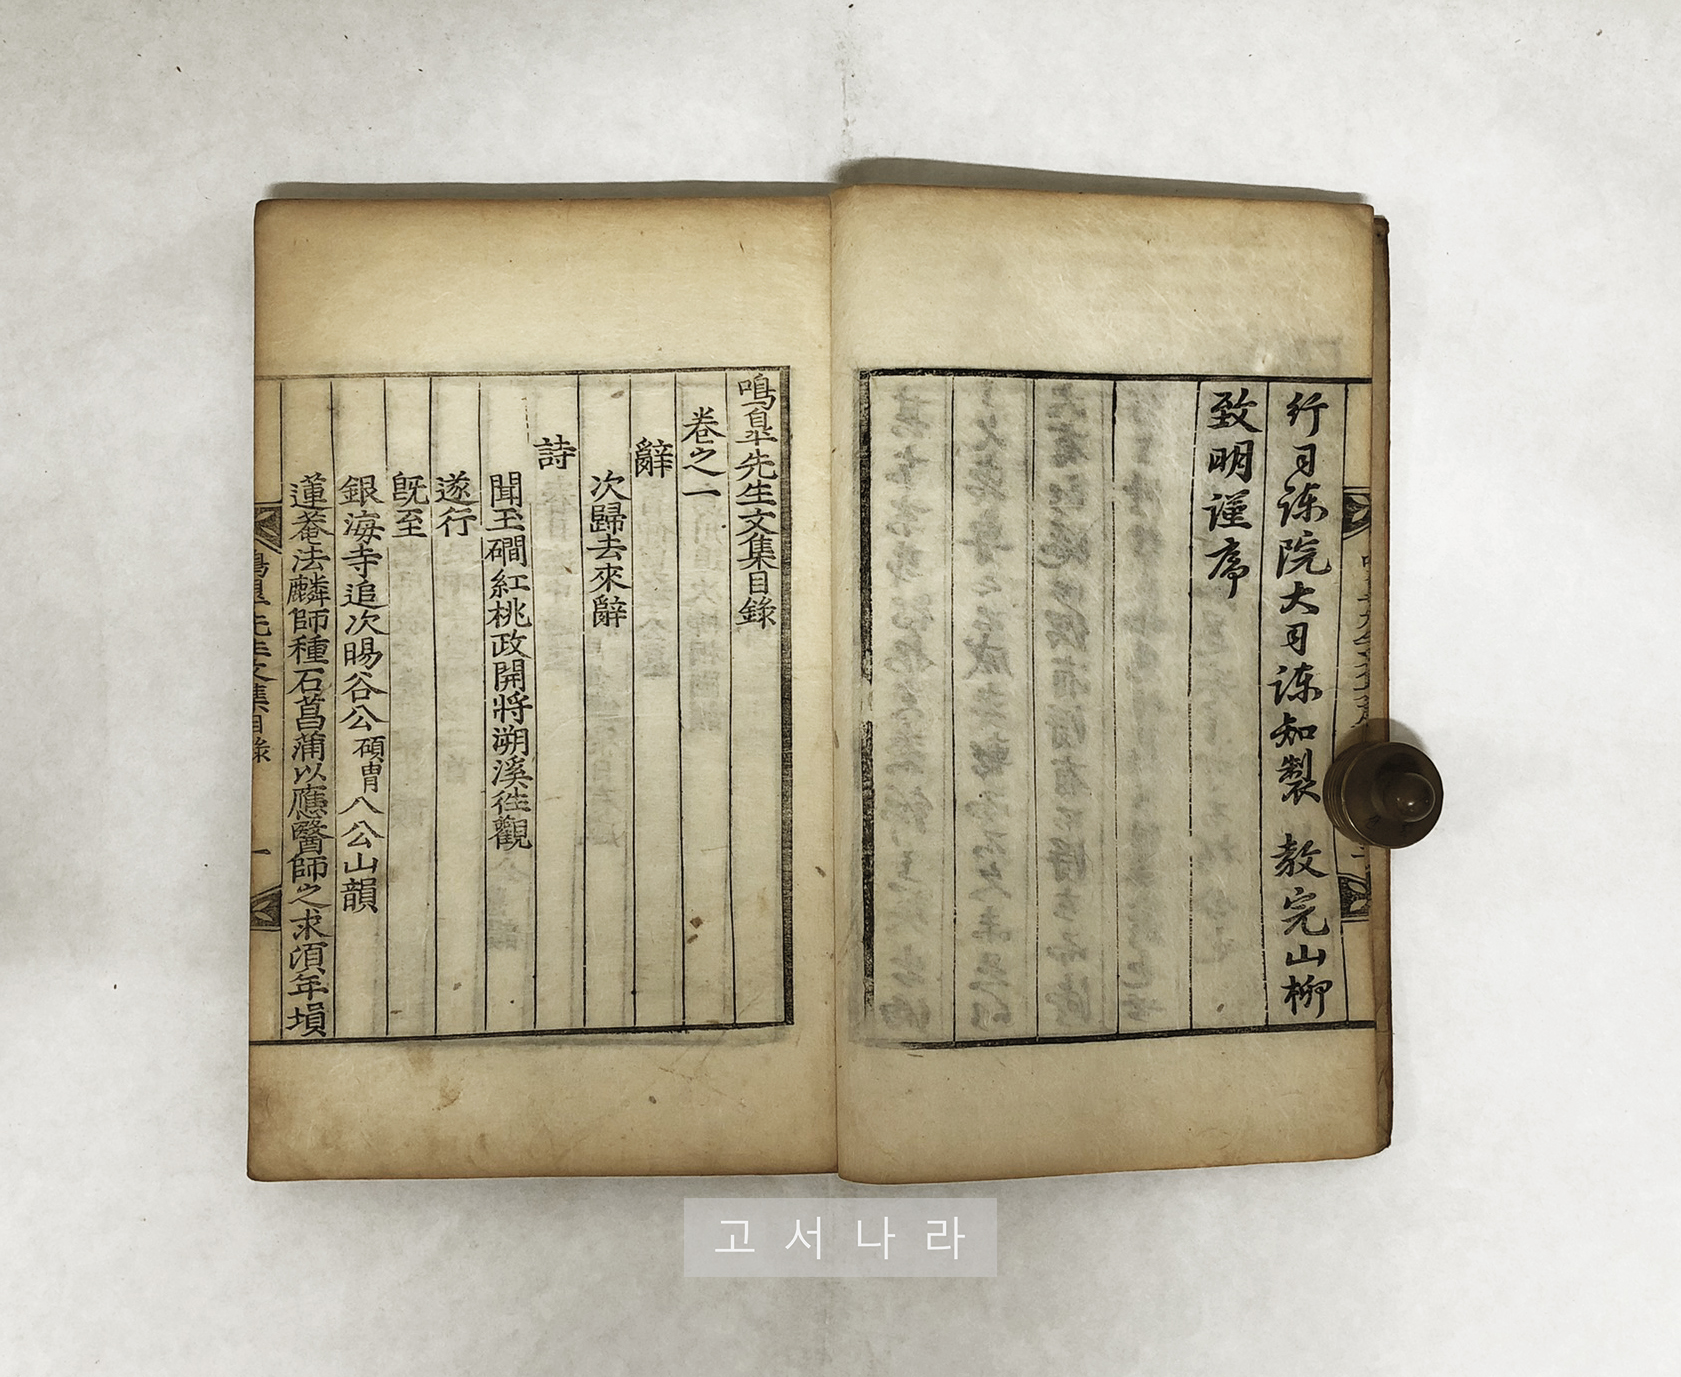 行司諫院大司諫知製 教完山柳
致明謹序
鳴臯先生文集目錄
卷之一
辭
次歸去來辭
詩
聞玉磵紅桃政開將溯溪徃觀
遂行
旣至
銀海寺追次暘谷公碩胄八公山韻
蓮菴法麟師種石菖蒲以應醫師之求湏年塤
鳴臯先生文集目錄
一
고서나라